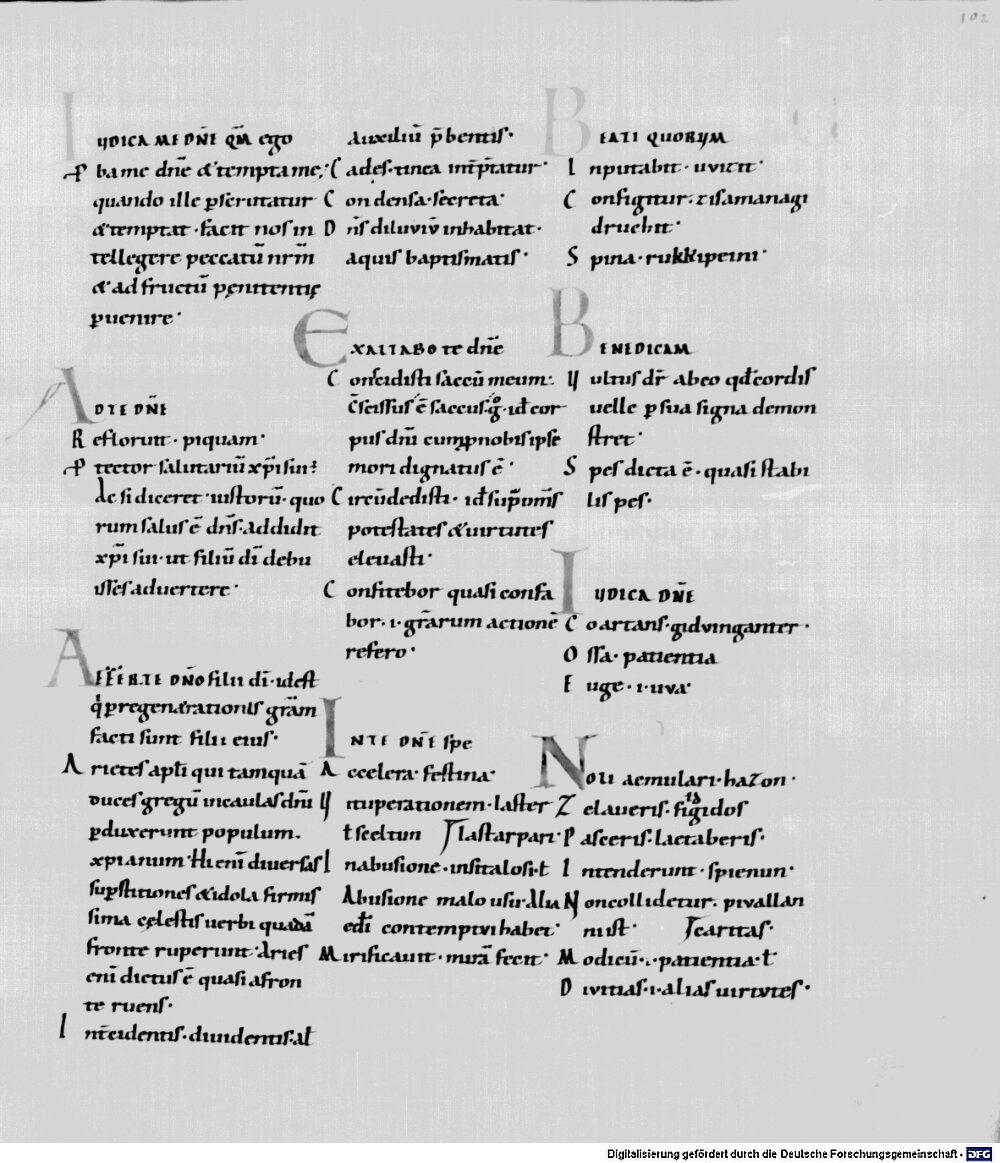 102
IUDICA ME DNE QM ego
P ba me dne & tempta me;
quando ille pscrutatur
& temptat · facit nos in
tellegere peccatū nrm
& ad fructū pęnitentię
puenire ·
AD TE DNE
Reflorun̄t · piquam ·
Ptector salutariū xpi sui:
ac si diceret · iustorū · quo
rum salus ē dns · addidit
xpi sui · ut filiū di debu
isses advertere ·
AFFERTE DNO filii di · id est
q pregenerationis grām
facti sunt filii eius ·
Arietes apti qui tamquā
duces gregū in caulas dnī
pduxerunt populum.
xpianum · Hi enī diversas
supstitiones & idola firmis
sima cęlestis uerbi quadā
fronte ruperunt · Aries
enī dictus ē quasi a fron
te ruens ·
Intcidentis · diuidentis · at
auxiliū pbentis ·
Cades · tinca intptatur ·
Condensa · secreta ·
Dns diluviū inhabitat ·
aquis baptismatis ·
EXALTABO te dne
Conscidisti saccū meum ·
cscissus ē saccus · g · id cor
pus dnī cum p nobis ipse
mori dignatus ē ·
Circūdedisti · id sup oms
potestates & uirtutes
elevasti ·
Confitebor quasi confa
bor · i · grarum actionē
refero ·
IN TE DNE spe
Accelera · festina ·
Uituperationem · laster
t sceltun lastarpari ·
In abusione · insitalosi · t
Abusione malo usu · Alia
edī contemptui habet ·
Mirificauit · mirā fecit ·
BEATI QUORUM
Inputabit · uuizit ·
Configitur · zisamanagi
druchit ·
Spina · rukkipeini ·
BENEDICAM
Uultus dī ab eo qd cordis
uelle p sua signa demon
stret ·
Spes dicta ē · quasi stabi
lis pes ·
IUDICA DNE
Coartans · giduinganter ·
Ossa · patientia
Euge · i · uva ·
Noli aemulari · hazon ·
Zelaveris · figidos
Pasceris · laetaberis ·
Intenderunt · spienun ·
Non collidetur · pivallan
nist · caritas ·
Modicū · i · patientia · t
Divitias · i · alias uirtutes ·
Digitalisierung gefördert durch die Deutsche Forschungsgemeinschaft - DFG